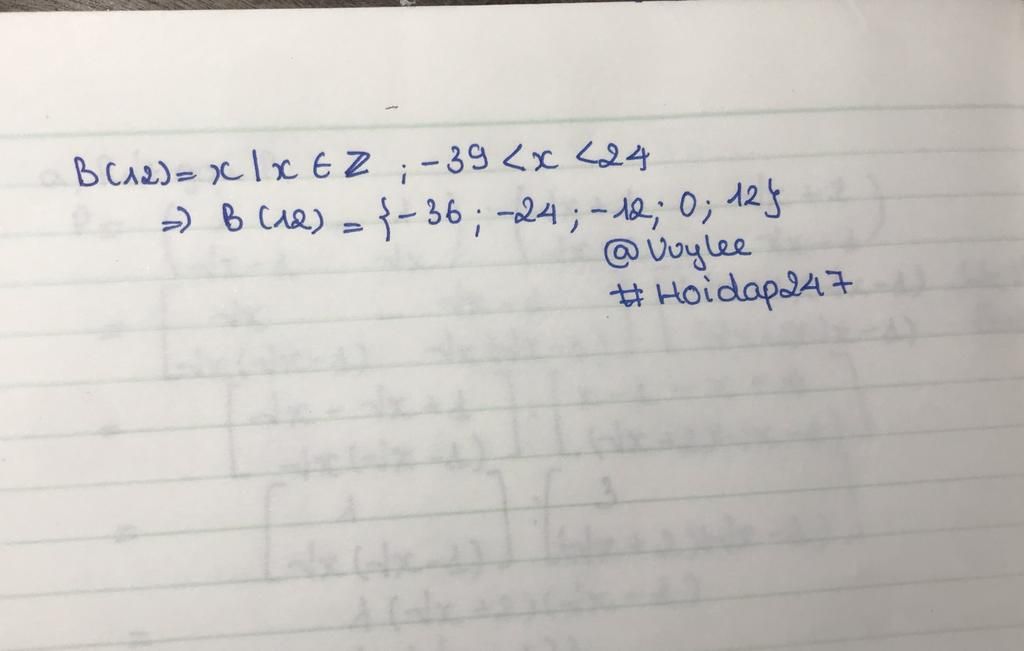 B(12) = x | x ∈ Z ; -39 < x < 24
=> B(12) = {-36 ; -24 ; -12; 0; 12}
@Vuylee
# Hoidap247